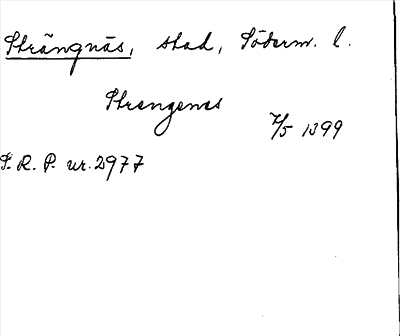 Strängnäs, stad, Söderm. l.
Strengenes
7/5 1399
S. R. P. nr. 2977